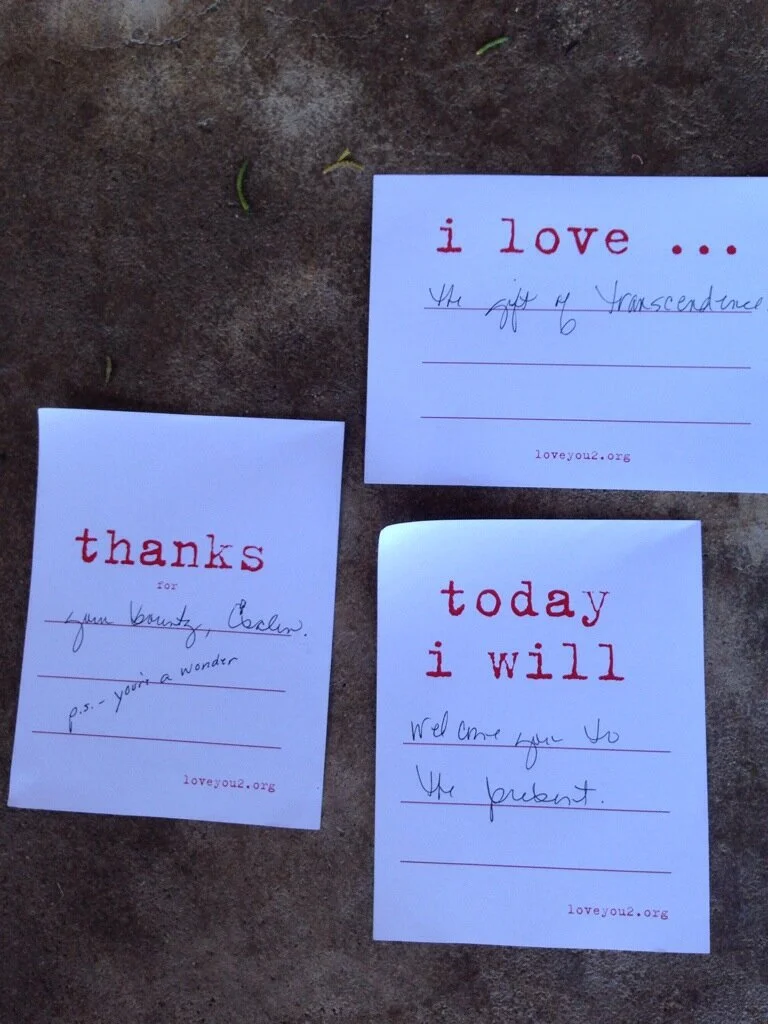 i love ...
the gift of transcendence
loveyou2.org
thanks
for
your bounty, Esalen.
p.s. - you're a wonder
loveyou2.org
today
i will
welcome you to
the present.
loveyou2.org